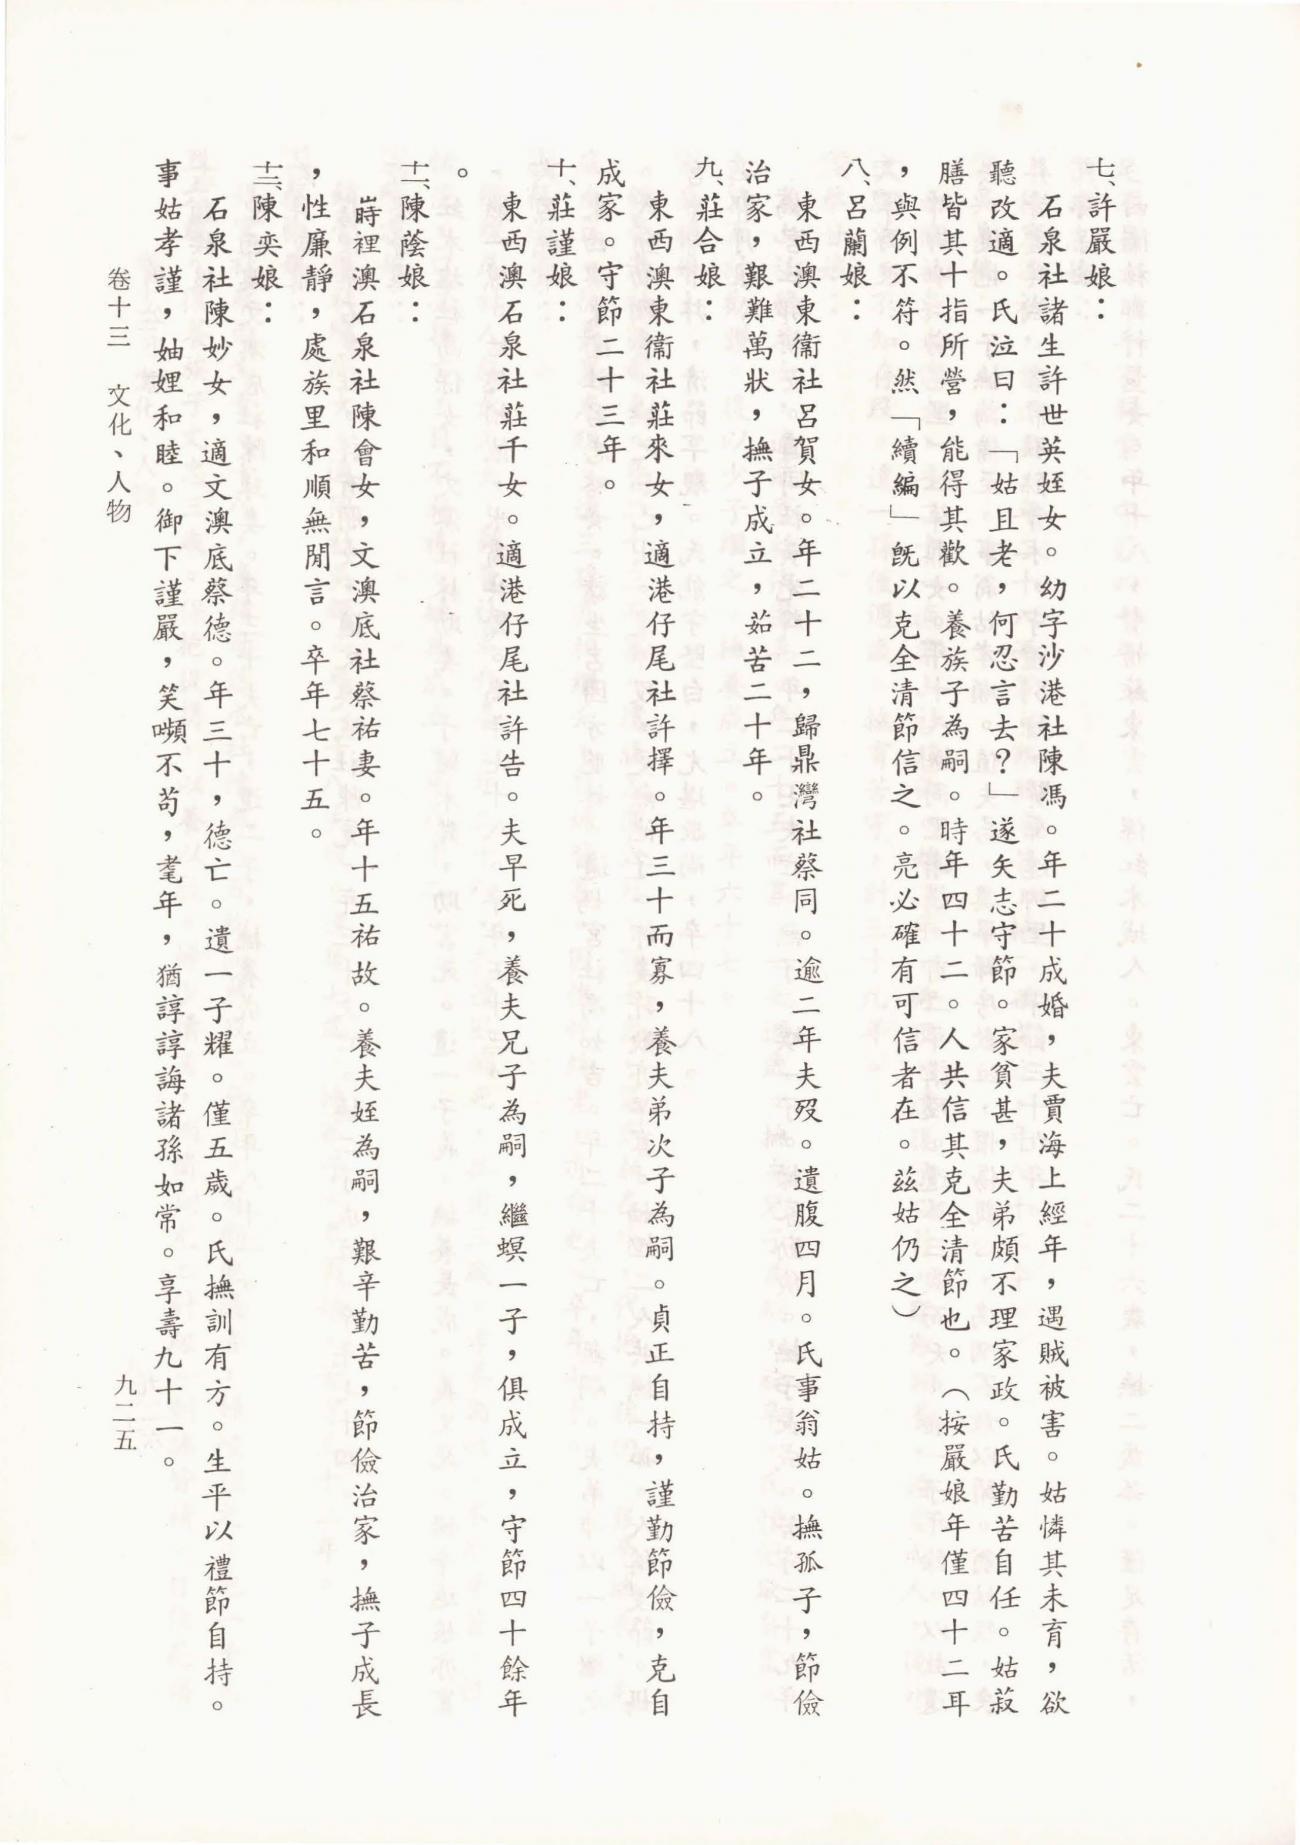 七、許嚴娘：
石泉社諸生許世英姪女。幼字沙港社陳馮。年二十成婚，夫賈海上經年，遇賊被害。姑憐其未育，欲
聽改適。氏泣曰：「姑且老，何忍言去？」遂矢志守節。家貧甚，夫弟頗不理家政。氏勤苦自任。姑菽
膳皆其十指所營，能得其歡。養族子為嗣。時年四十二。人共信其克全清節也。（按嚴娘年僅四十二耳
，與例不符。然「續編」旣以克全清節信之。亮必確有可信者在。茲姑仍之）
八、呂蘭娘：
東西澳東衞社呂賀女。年二十二，歸鼎灣社蔡同。逾二年夫歿。遺腹四月。氏事翁姑。撫孤子，節儉
治家，艱難萬狀，撫子成立，茹苦二十年。
九、莊合娘：
東西澳東衞社莊來女，適港仔尾社許擇。年三十而寡，養夫弟次子為嗣。貞正自持，謹勤節儉，克自
成家。守節二十三年。
十、莊謹娘：
東西澳石泉社莊千女。適港仔尾社許告。夫早死，養夫兄子為嗣，繼螟一子，俱成立，守節四十餘年
。
十一、陳蔭娘：
嵵裡澳石泉社陳會女，文澳底社蔡祐妻。年十五祐故。養夫姪為嗣，艱辛勤苦，節儉治家，撫子成長
，性廉靜，處族里和順無閒言。卒年七十五。
十二、陳奕娘：
石泉社陳妙女，適文澳底蔡德。年三十，德亡。遺一子耀。僅五歲。氏撫訓有方。生平以禮節自持。
事姑孝謹，妯娌和睦。御下謹嚴，笑嚬不苟，耄年，猶諄諄誨諸孫如常。享壽九十一。
卷十三　文化、人物
九二五